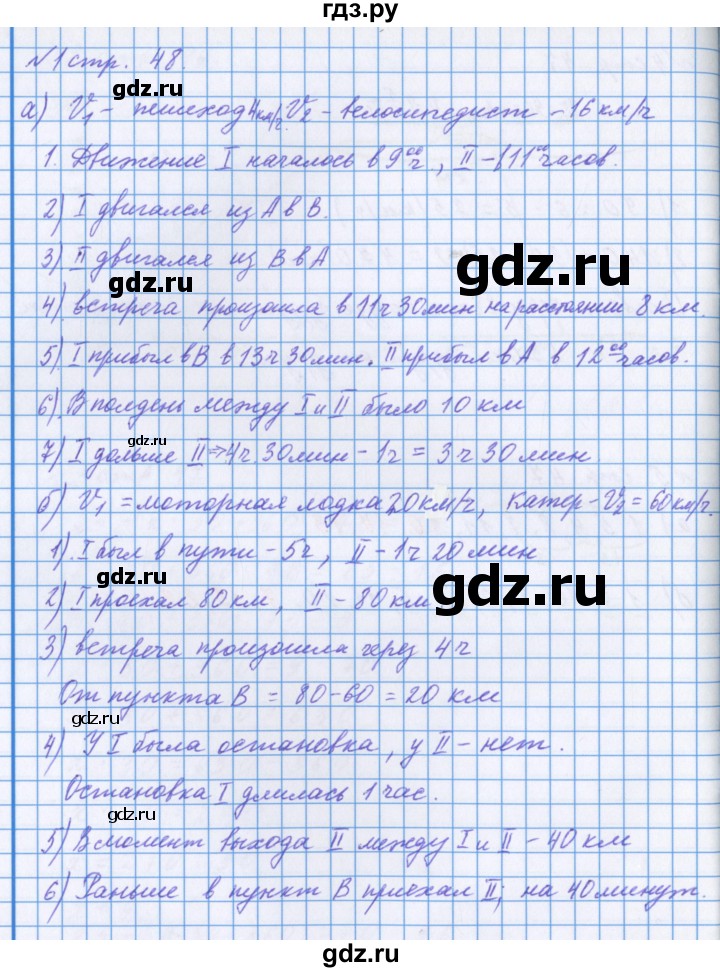 гдз.ру
№1 стр. 48.
а) V₁ – пешеход 4 км/ч. V₂ – велосипедист – 16 км/ч
1. Движение I началось в 9⁰⁰ ч, II – 11⁰⁰ часов.
2) I двигался из А в В.
gdz.ru
3) II двигался из В в А
gdz.ru
4) встреча произошла в 11ч 30мин на расстоянии 8 км.
5) I прибыл в В в 13ч 30мин. II прибыл в А в 12⁰⁰ часов.
6) В полдень между I и II было 10 км
gdz.ru
7) I дольше II ⇒ 4ч 30мин – 1ч = 3ч 30мин
б) V₁ = моторная лодка 20км/ч, катер – V₂ = 60км/ч.
1) I был в пути – 5ч, II – 1ч 20мин
gdz.ru
gdz.ru
2) I проехал 80км, II – 80км
3) встреча произошла через 4ч
От пункта В = 80–60 = 20 км
gdz.ru
4) У I была остановка, у II – нет.
Остановка I длилась 1 час.
gdz.ru
5) В момент выхода II между I и II – 40 км
6) Раньше в пункт В приехал II, на 40минут.
gdz.ru